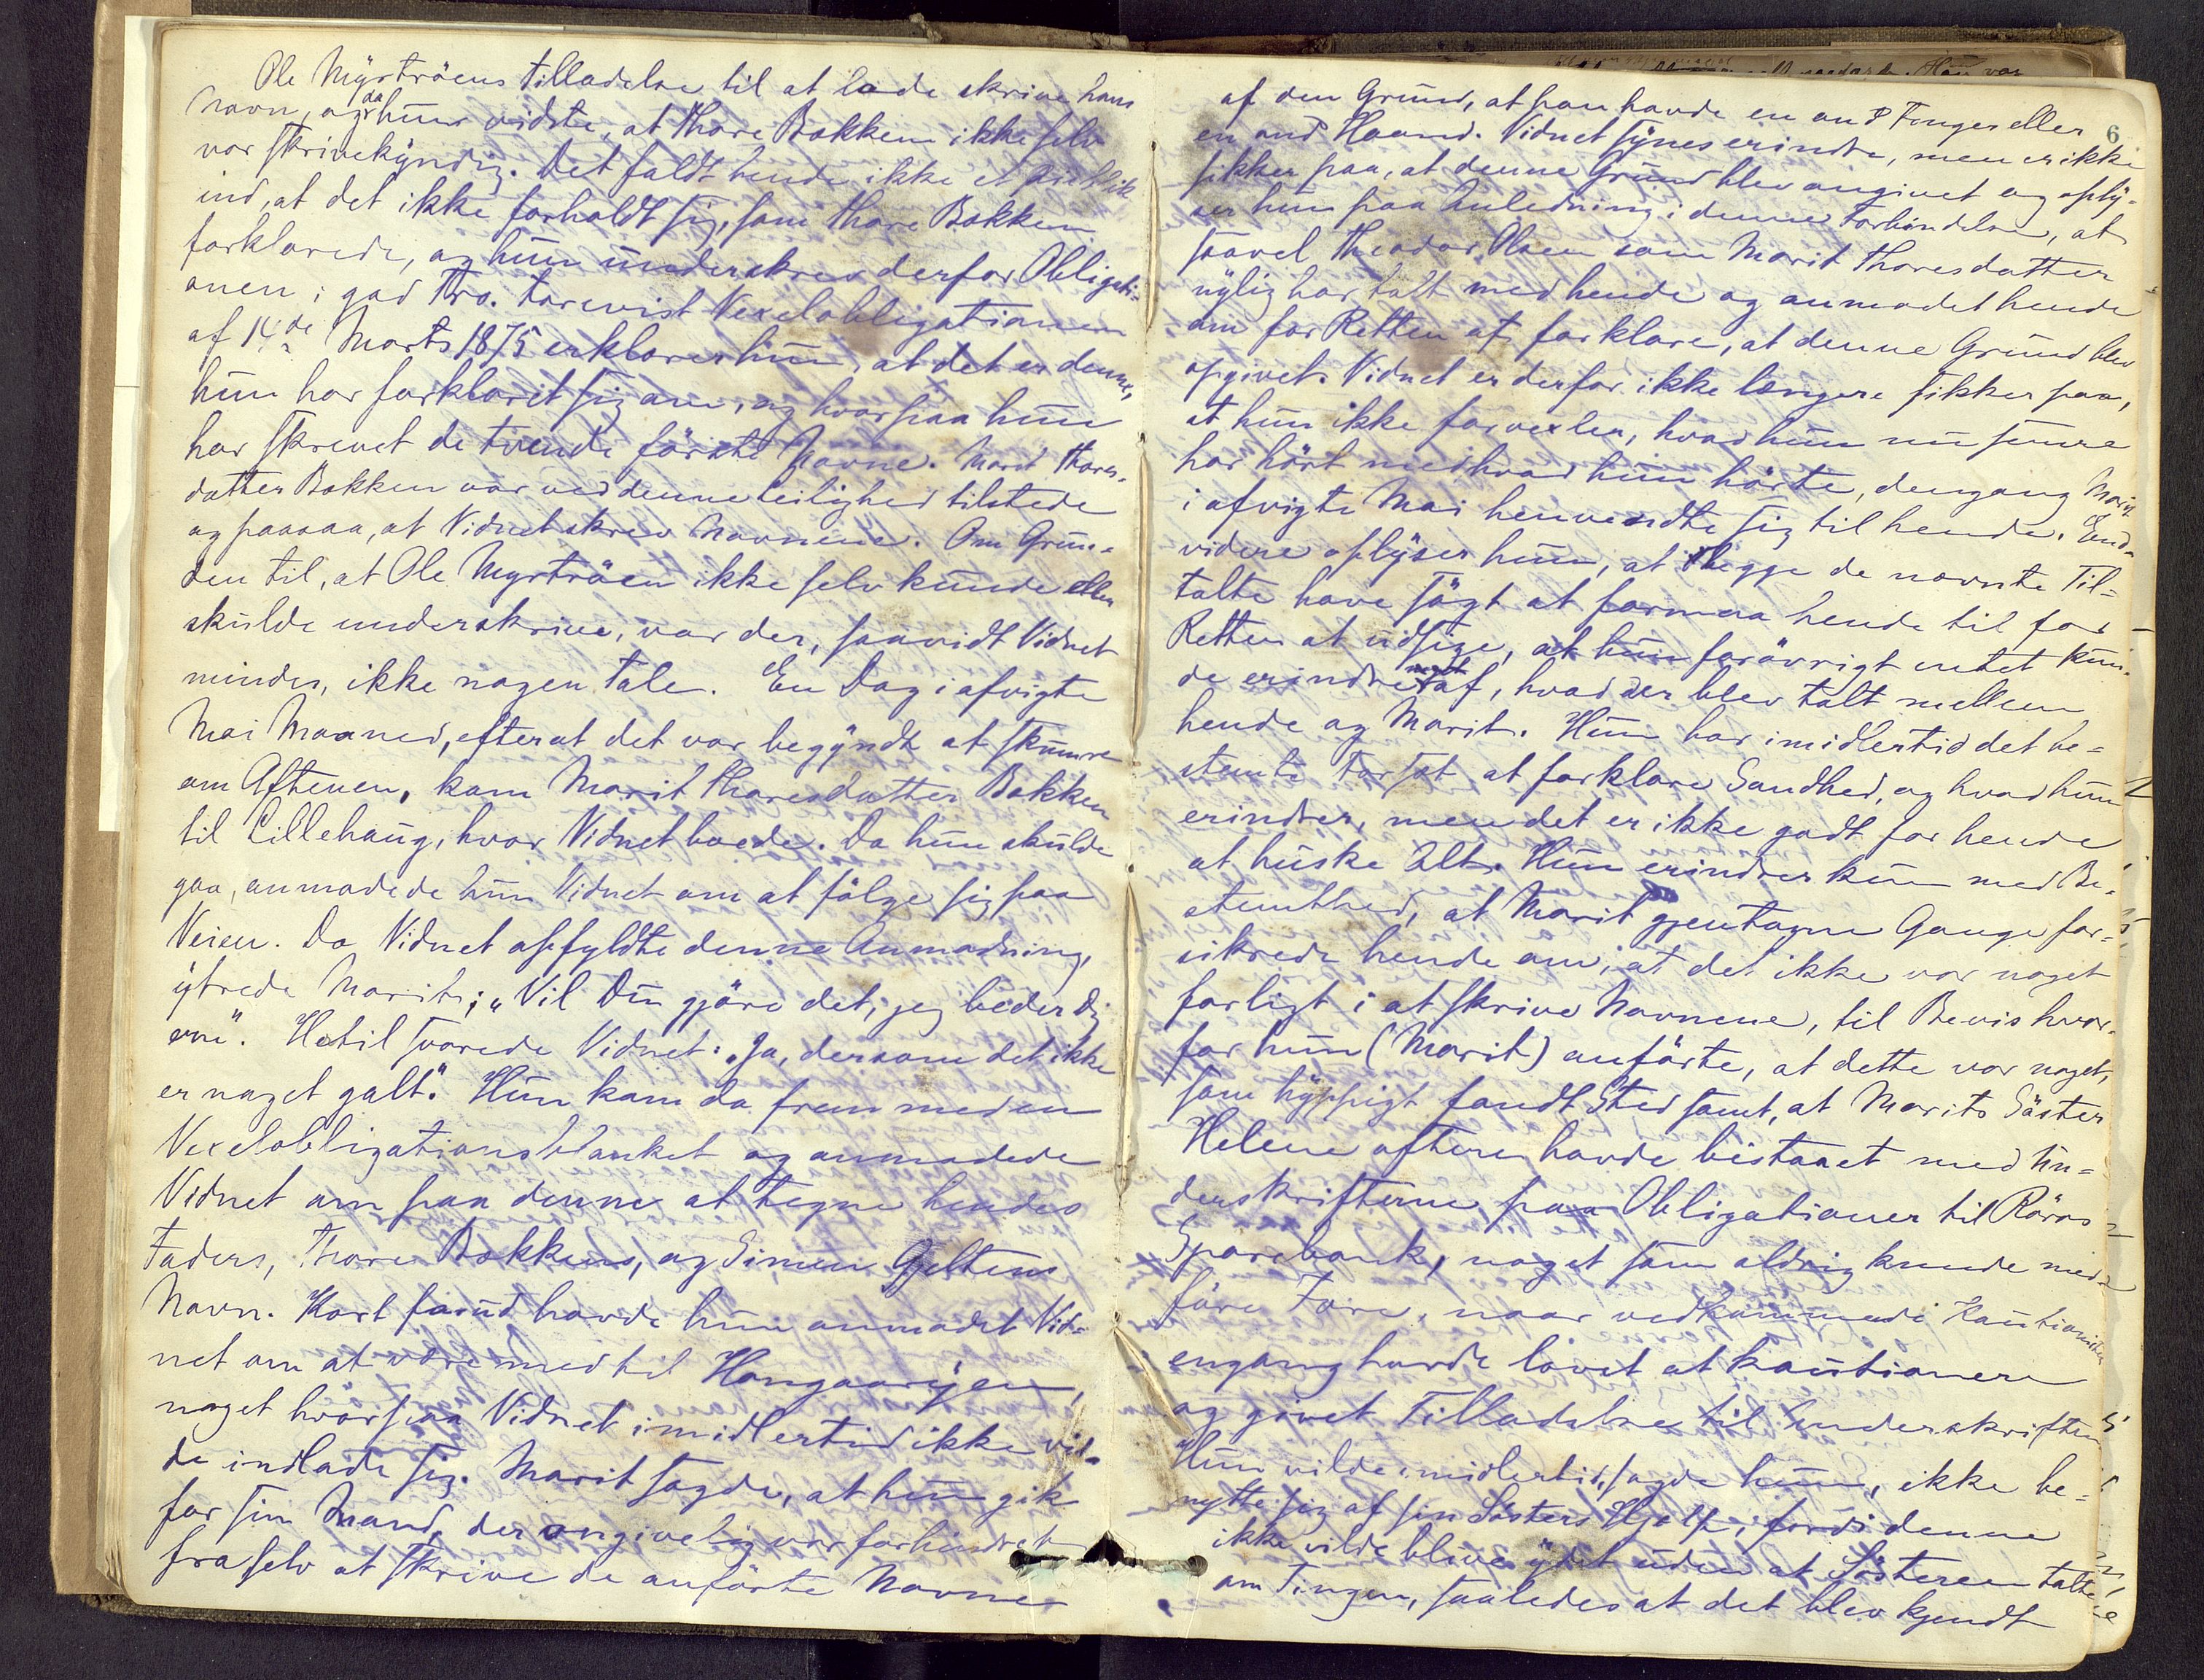 Ole Myrtröens tilladelse til at lade skrive hans
Navn, og da hun vidste, at Thore Bakken ikke selv
var skrivekyndig. Det faldt hende ikke et Øieblik
ind, at det ikke forholdt sig, som Thore Bakken
forklarede, og hun underskrev derfor Obligati-
onen i god Tro. Forevist Vexelobligationen
af 14de Marts 1875 erklærer hun, at det er denne,
hun har forklaret sig om, og hvorpaa hun
har skrevet de tvende första Navne. Marit Thores-
datter Bakken var ved denne Leilighed tilstede
og paasaa, at Vidnet skrev Navnene. Om Grun-
den til, at Ole Myrtröen ikke selv kunde eller
skulde underskrive, var der, saavidt Vidnet
mindes, ikke nogen Tale. En Dag i afvigte
Mai Maaned, efterat det var begyndt at skumre
om Aftenen, kom Marit Thoresdatter Bakken
til Lillehaug, hvor Vidnet boede. Da hun skulde
gaa, anmodede hun Vidnet om at fölge sig paa
Veien. Da Vidnet opfyldte denne Anmodning,
ytrede Marit; "Vil Du gjöre det, jeg beder Dig
om". Hertil svarede Vidnet: "Ja, dersom det ikke
er noget galt". Hun kom da frem med en
Vexelobligationsblanket og anmodede
Vidnet om paa denne at tegne hendes
Faders, Thore Bakkens, og Simen Gjeltens
Navn. Kort forud havde hun anmodet Vid-
net om at være med til Hangaaröien,
noget hvorpaa Vidnet imidlertid ikke vil-
de indlade sig. Marit sagde, at hun gik
for sin Mand, der angivelig var forhindret
fra selv at skrive de anförte Navne
6
af den Grund, at han havde en ond Finger eller
en ond Haand. Vidnet synes erindre, men er ikke
sikker paa, at denne Grund blev angivet og oply-
ser hun paa Anledning i denne Forbindelse, at
saavel Theodor Olsen som Marit Thoresdatter
nylig har talt med hende og anmodet hende
om for Retten at forklare, at denne Grund blev
opgivet. Vidnet er derfor ikke længere sikker paa,
at hun ikke forvexler, hvad hun nu senere
har hört med hvad hun hörte, dengang Marit
i afvigte Mai henvendte sig til hende. End-
videre oplyser hun, at begge de nævnte Til-
talte have sögt at formaa hende til for
Retten at udsige, at hun forövrigt intet kun-
de erindre af, hvad der blev talt mellem
hende og Marit. Hun har imidlertid det be-
stemte Forsæt at forklare Sandhed, og hvad hun
erindrer, men det er ikke godt for hende
at huske Alt. Hun erindrer kun med Be-
stemthed, at Marit gjentagne Gange for-
sikrede hende om, at det ikke var noget
farligt i at skrive Navnene, til Bevis hvor-
for hun (Marit) anförte, at dette var noget,
som hyppigt fandt Sted samt, at Marits Söster
Helene oftere havde bistaaet med Un-
derskrifterne paa Obligationer til Röros
Sparebank, noget som aldrig kunde med-
före Fare, naar vedkommende Kautionister
engang havde lovet at kautionere
og givet Tilladelse til Underskriften
Hun vilde imidlertid, sagde hun, ikke be-
nytte sig af sin Sösters Hjælp, fordi denne
ikke vilde blive ydet uden at Sösteren talte
om Tingen, saaledes at det blev kjendt